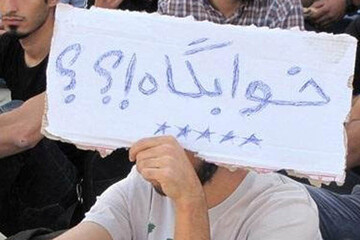 خوابگاه!؟؟
★★★★★